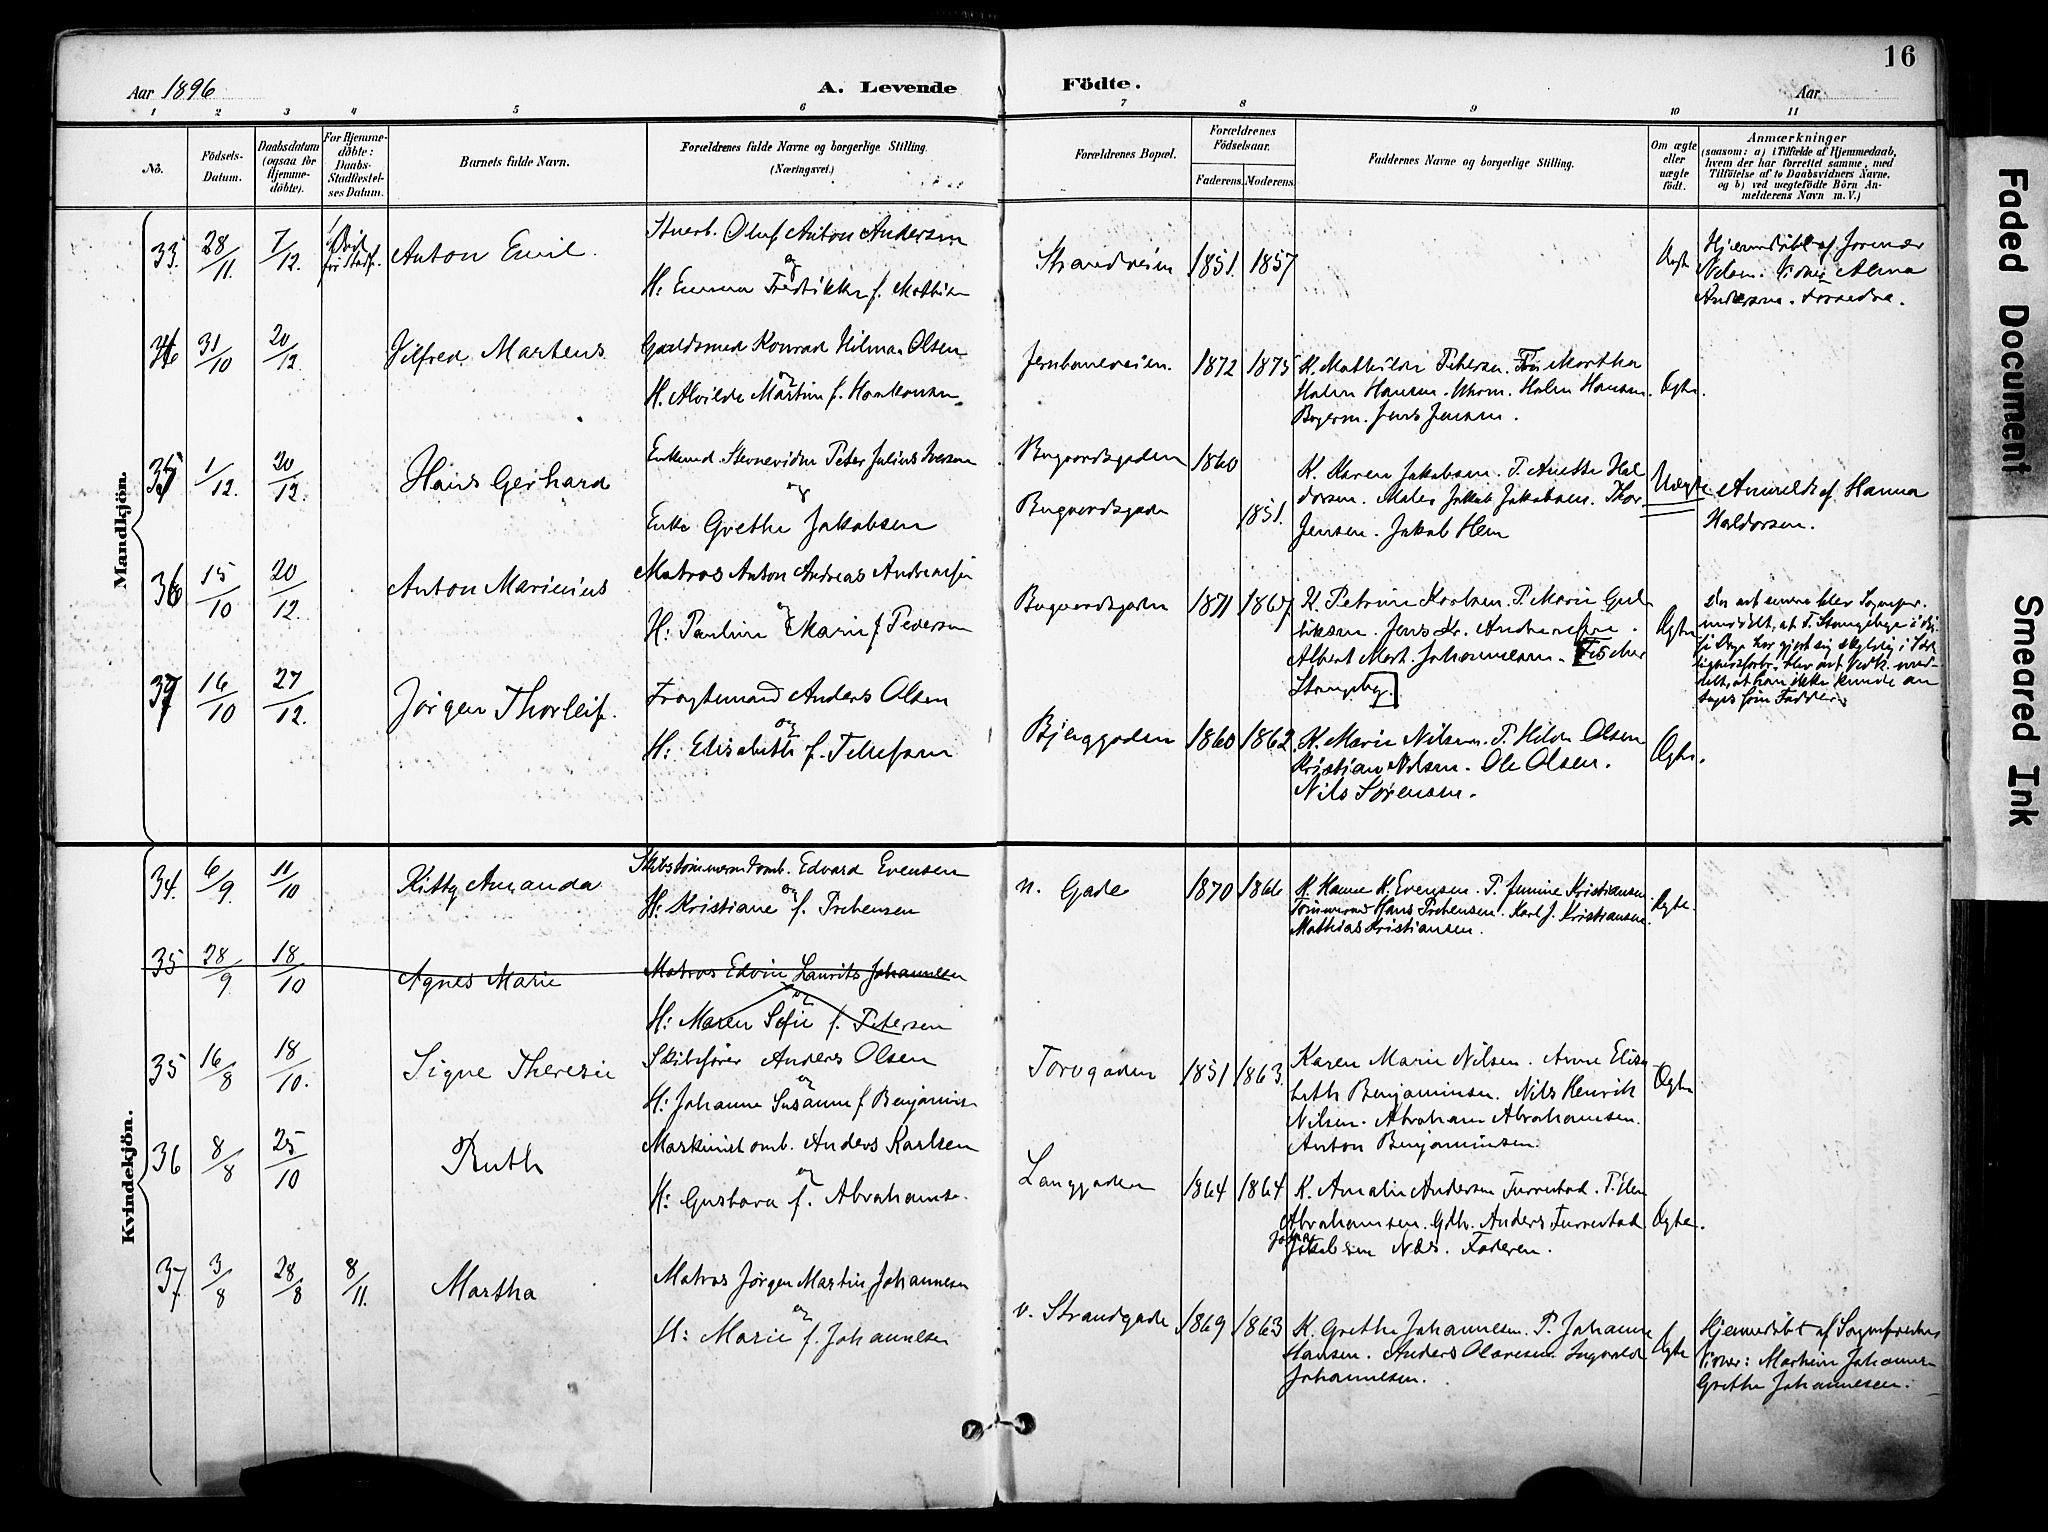 16
Aar 1896
A. Levende Födte.
Aar
1 2 3 4 5 6 7 8 9 10 11
No.
Födsels-Datum.
Daabsdatum (ogsaa for Hjemme-döbte).
For Hjemme-döbte: Daabs-Stadfæstel-ses Datum.
Barnets fulde Navn.
Forældrenes fulde Navne og borgerlige Stilling.
(Næringsvei.)
Forældrenes Bopæl.
Forældrenes Födselsaar.
Faderens. Moderens.
Faddernes Navne og borgerlige Stilling.
Om ægte eller uægte födt.
Anmærkninger
(saasom: a) i Tilfælde af Hjemmedaab,
hvem der har forrettet samme, med
Tilföielse af to Daabsvidners Navne.
og b) ved uægtefödte Börn An-
melderens Navn m.V.)
Mandkjön.
33. 28/11 7/12. Anton Emil.
Oluf Anton Andersen
og
H: Emma Fredrikke f.
Strandveien 1851. 1857
Ægte
Hjemmedøbt af Jormor
Nilsen. Alma
Andersen. Forældre.
34 31/10 20/12. Vilfred Martens
Guldsmed Konrad Hilmar Olsen
og
H. Alvilde Martine f. Haakonsen.
Jernbaneveien. 1872 1875
K. Mathilde Petersen. Martha
Halvor Hansen. Halvor Hansen.
Bagerm. Jens Jensen.
Ægte.
35 1/12. 20/12. Hans Gerhard
Enkemd. Peter Julius Iversen
og
Enke Grethe Jakobsen
Bugaardsgaden 1860
Bugaardsgaden 1851.
K. Karen Jakobsen. P. Anette Hal-
dorsen. Maler Jakob Jakobsen. Thor
Jensen. Jakob Hem
Uægte
Anmeldt af Hanna
Haldorsen.
36 15/10 20/12. Anton Marinius
Matros Anton Andreas Andreassen
og
H: Pauline Marie f. Pedersen
Bugaardsgaden 1871 1867
K. Petrine Karlsen. P. Marie Gul-
liksen. Jens Kr. Andreassen.
Albert Mart. Johannesen. Fischer
Stangeby.
Ægte
Da det senere blev Sognepr.
meddelt, at F. Stangeby
har gjort sig skyldig i
blev det
delt, at han ikke kunde an-
tages som Fadder.
37 16/10 27/12. Jørgen Thorleif.
Fragtemand Anders Olsen
og
H: Elisabeth f. Tellefsen
Bjerggaden 1860 1862
K. Marie Nilsen. P. Hilda Olsen
Kristian Nilsen. Ole Olsen.
Nils Sørensen.
Ægte.
Kvindekjön.
34. 6/9. 11/10 Kitty Amanda
Skibstømmermd omb. Edvard Evensen
og
H: Kristiane f. Prebensen
n. Gade 1870 1866
K. Hanne K. Evensen. P. Jensine Kristiansen
Tømmermd Hans Prebensen. Karl J. Kristiansen
Mathias Kristiansen.
Ægte.
35 28/9. 18/10 Agnes Marie
Matros Edvin Laurits Johannesen
og
H: Maren Sofie f. Petersen
35 16/8 18/10. Signe Theresie
Skibsfører Anders Olsen
og
H: Johanne Susanne f. Benjaminsen
Torvgaden 1851 1863.
Karen Marie Nilsen. Anne Elisa-
beth Benjaminsen. Nils Henrik
Nilsen. Abraham Abrahamsen.
Anton Benjaminsen.
Ægte
36 8/8 25/10 Ruth
Maskinist omb. Anders Karlsen
og
H: Gustava f. Abrahamse.
Langgaden 1864 1864
K. Amalie Andersen Furrestad. P. Elen
Abrahamsen. Gdbr. Anders Furrestad
Johan
Jakobsen Næs. Faderen.
Ægte.
37 3/8 28/8 8/11. Martha
Matros Jørgen Martin Johannesen
og
H: Marie f. Johannesen
v. Strandgade 1869 1863
K. Grethe Johannesen. P. Johanne
Hansen. Anders Olavesen. Ingvald
Johannesen.
Ægte
Hjemmedøbt af Sognepresten
Vidner: Marthin Johannes-
Grethe Johannesen.
Faded Document
Smeared Ink